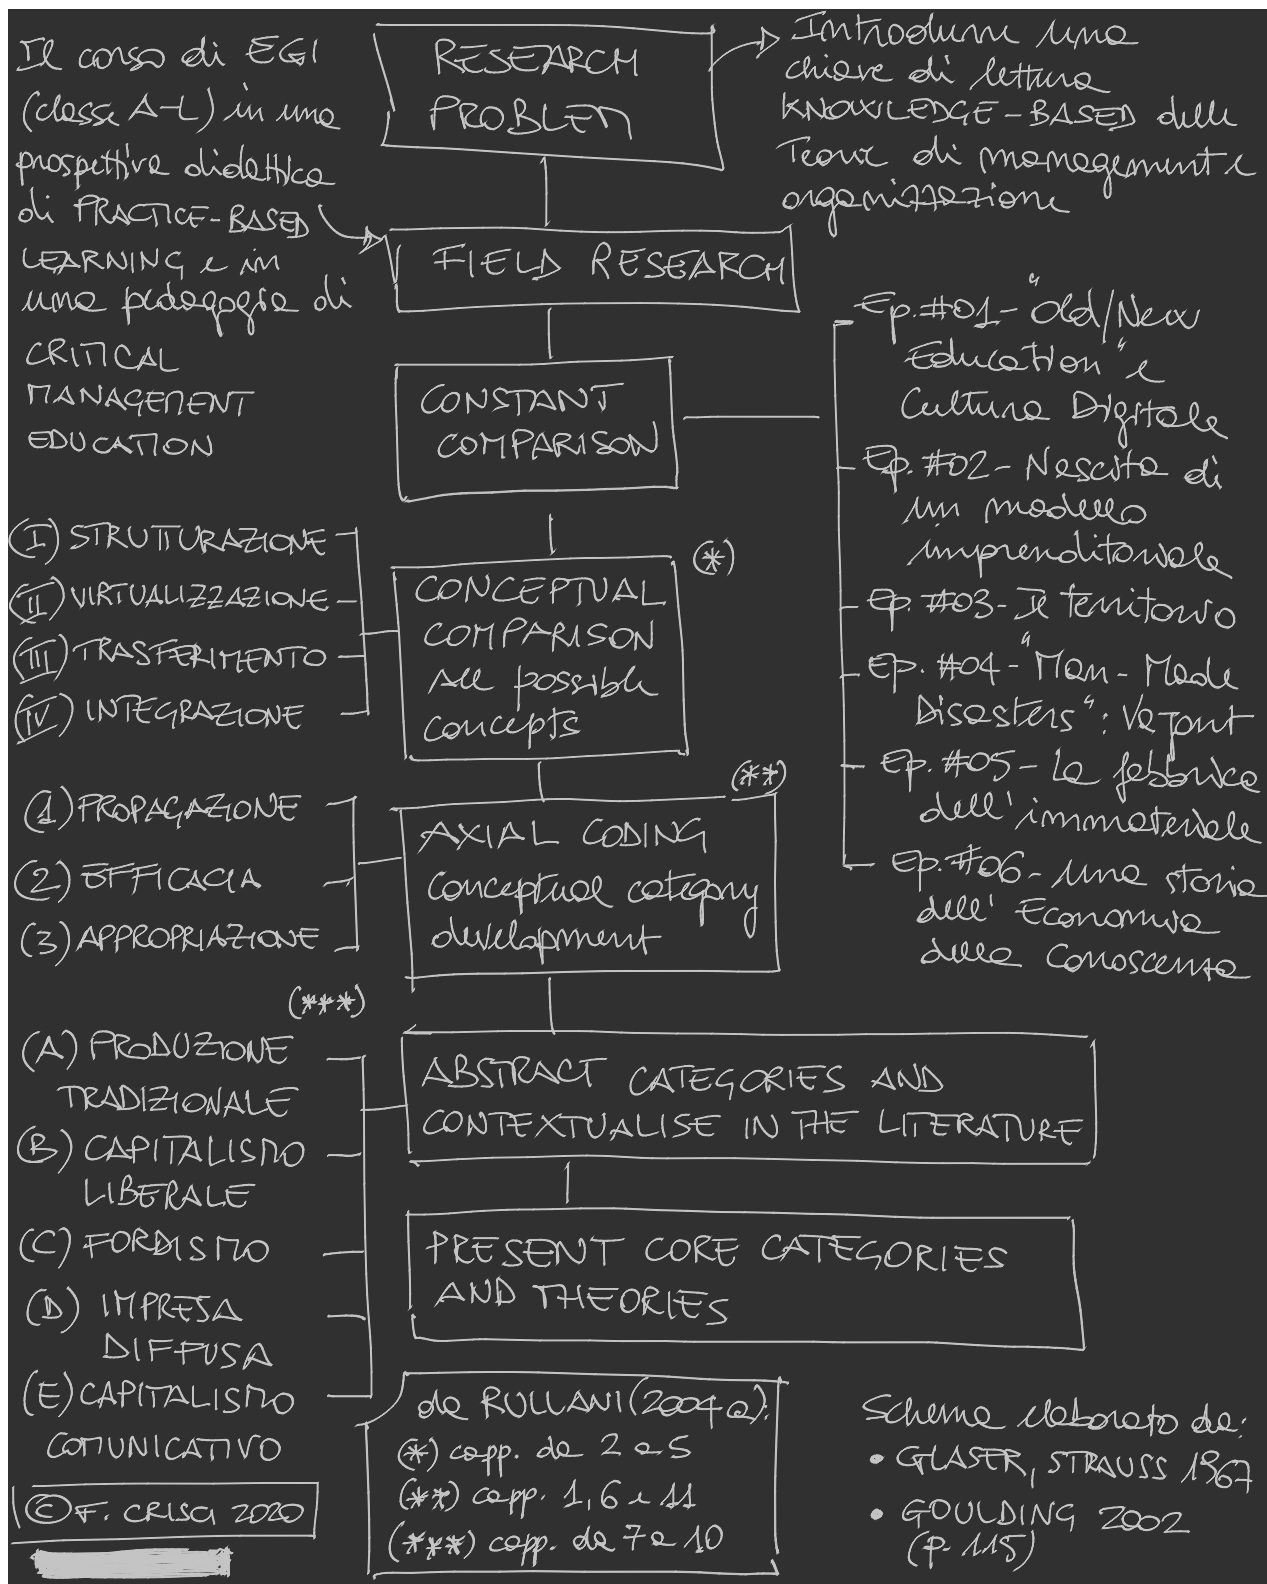 Il corso di EGI
(classe A-L) in una
prospettiva didattica
di PRACTICE-BASED
LEARNING e in
una pedagogia di
CRITICAL
MANAGEMENT
EDUCATION
RESEARCH
PROBLEM
Introdurre una
chiave di lettura
KNOWLEDGE-BASED delle
Teorie di management e
organizzazione
FIELD RESEARCH
CONSTANT
COMPARISON
Ep. #01 - "Old/New
Education" e
Cultura Digitale
Ep. #02 - Nascita di
un modello
imprenditoriale
Ep. #03 - Il territorio
Ep. #04 - "Man-Made
Disasters": Vajont
Ep. #05 - La fabbrica
dell'immateriale
Ep. #06 - una storia
dell'Economia
della Conoscenza
(I) STRUTTURAZIONE
(II) VIRTUALIZZAZIONE
(III) TRASFERIMENTO
(IV) INTEGRAZIONE
(*)
CONCEPTUAL
COMPARISON
All possible
concepts
(1) PROPAGAZIONE
(2) EFFICACIA
(3) APPROPRIAZIONE
(**)
AXIAL CODING
Conceptual category
development
(***)
(A) PRODUZIONE
TRADIZIONALE
(B) CAPITALISMO
LIBERALE
(C) FORDISMO
(D) IMPRESA
DIFFUSA
(E) CAPITALISMO
COMUNICATIVO
ABSTRACT CATEGORIES AND
CONTEXTUALISE IN THE LITERATURE
PRESENT CORE CATEGORIES
AND THEORIES
© F. CRISCI 2020
da RULLANI (2004a):
(*) capp. da 2 a 5
(**) capp. 1, 6 e 11
(***) capp. da 7 a 10
Schema elaborato da:
• GLASER, STRAUSS 1967
• GOULDING 2002
(p. 115)